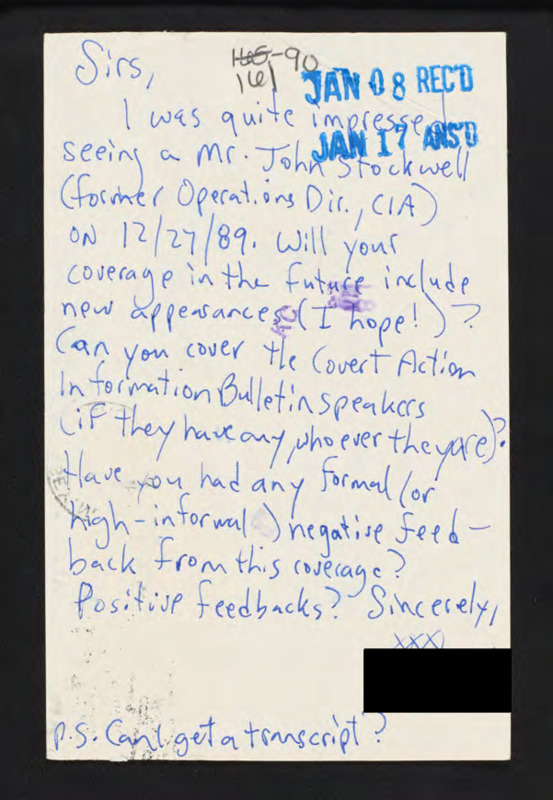 Sirs,
-90
161
JAN 08 REC'D
JAN 17 ANS'D
I was quite impressed
seeing a Mr. John Stockwell
(former Operations Dir., CIA)
ON 12/27/89. Will your
coverage in the future include
new appearances (I hope!)?
Can you cover the Covert Action
Information Bulletin speakers
(if they have any, who ever they are)?
Have you had any formal (or
high-informal) negative feed-
back from this coverage?
Positive feedbacks? Sincerely,
XXX
P.S. Can I get a transcript?